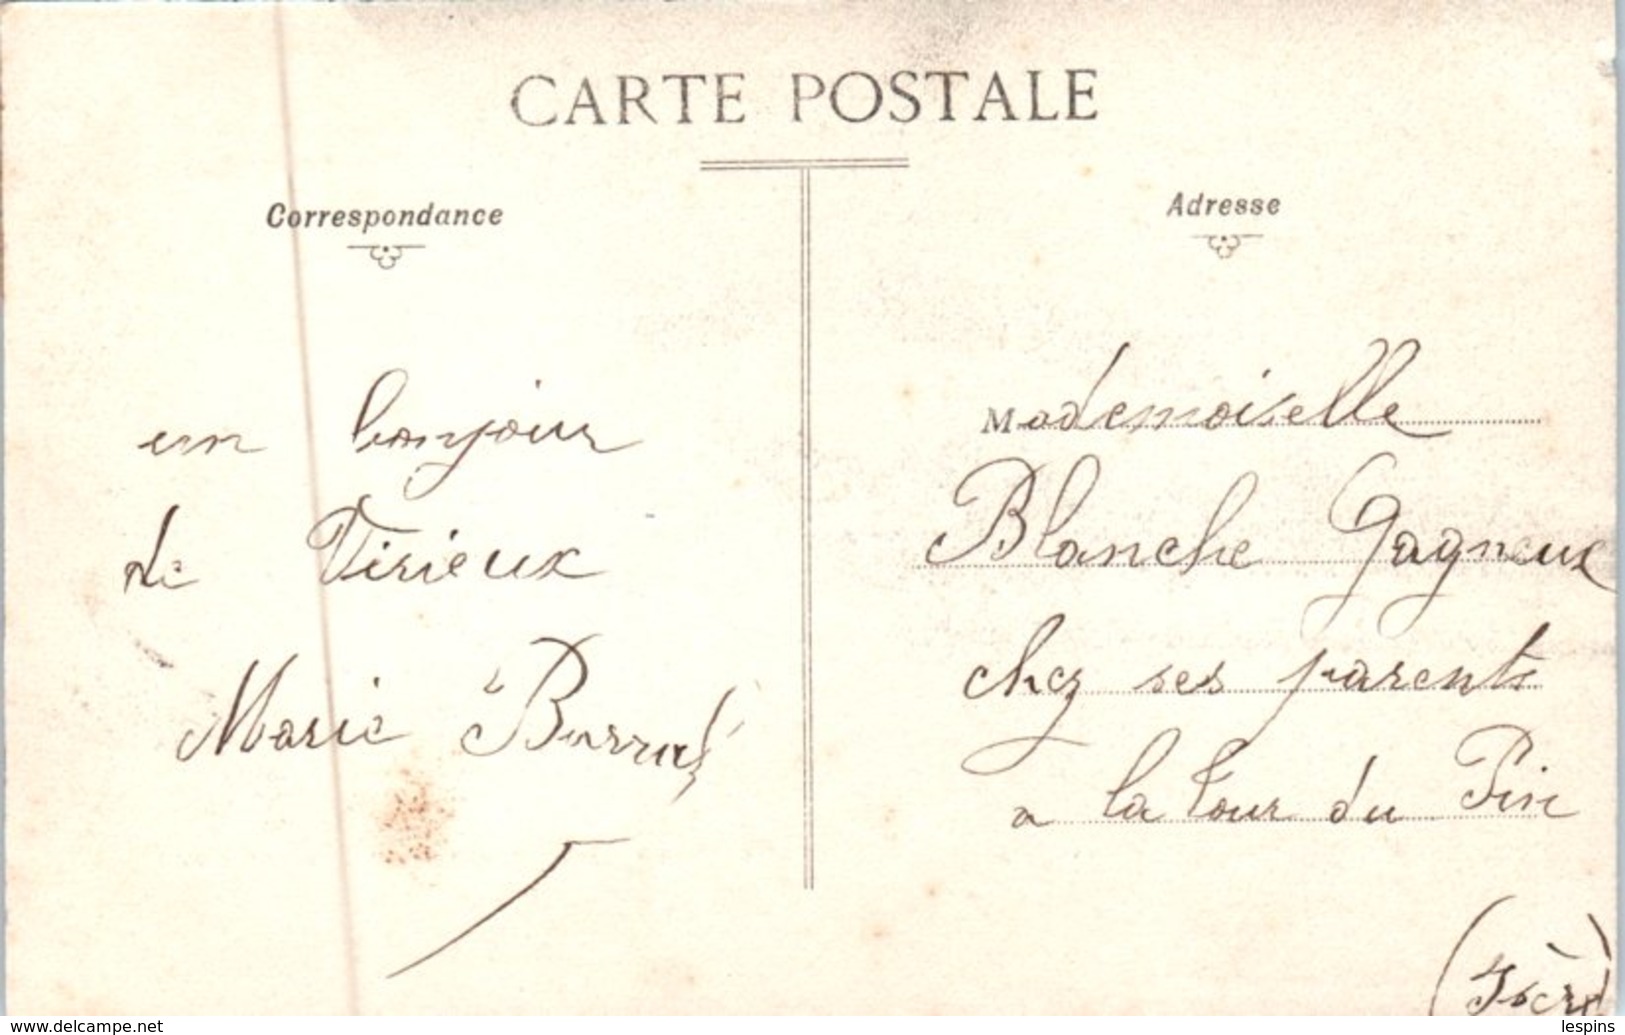 CARTE POSTALE
Correspondance
un bonjour
de Virieux
Marie
Adresse
Mademoiselle
Blanche Gagneux
chez ses parents
a la tour du Pin
(Isère)
www.delcampe.net
lespins